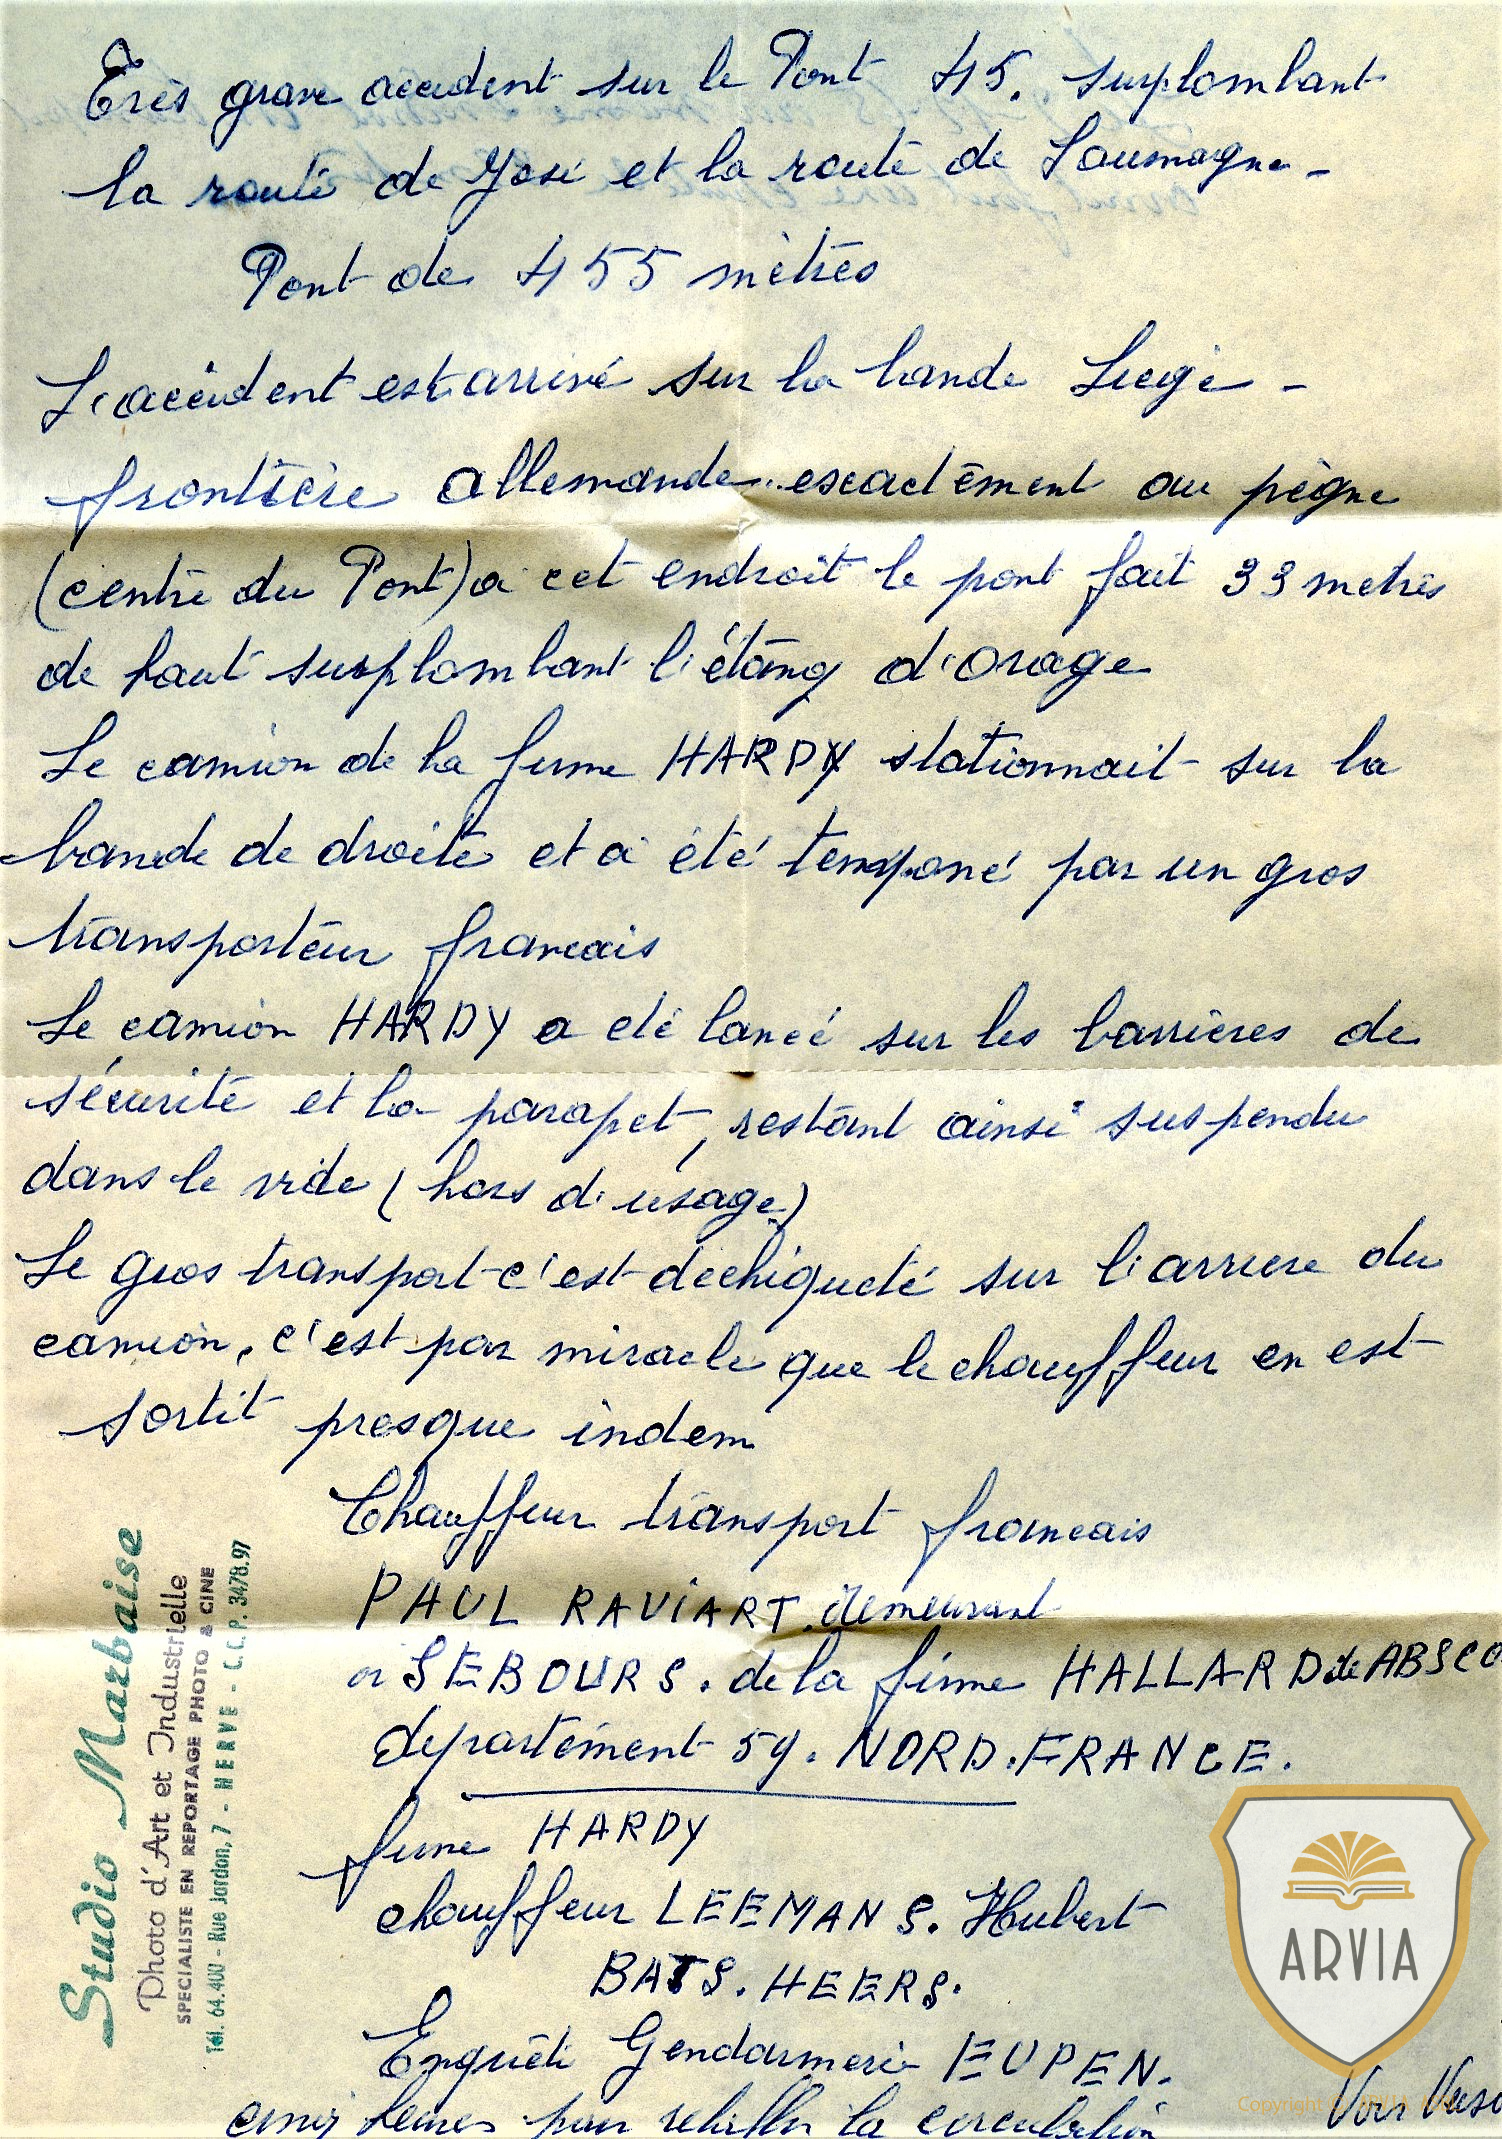 Très grave accident sur le Pont 45. surplombant
la route de José et la route de Soumagne -
Pont de 455 mètres
L'accident est arrivé sur la bande Liege -
frontière allemande exactement au pègne
(centre du Pont) a cet endroit le pont fait 33 metres
de haut surplombant l'étang d'Orage
Le camion de la firme HARDY stationnait sur la
bande de droite et a été temponé par un gros
transporteur francais
Le camion HARDY a eté lancé sur les barrières de
sécurité et la parapet, restant ainsi suspendu
dans le vide (hors d'usage)
Le gros transport c'est dechiqueté sur l'arriere du
camion, c'est par miracle que le chauffeur en est
sortit presque indem
Chauffeur transport francais
PAUL RAVIART. demeurant
a SEBOURS. de la firme HALLARD de ABSCO
departement 59. NORD. FRANCE.
firme HARDY
chauffeur LEEMANS. Hubert
BATS. HEERS.
Enquête Gendarmerie EUPEN.
cinq heures pour retablir la circulation
Voir Verso
Studio Marbaise
Photo d'Art et Industrielle
SPECIALISTE EN REPORTAGE PHOTO & CINE
Tél. 64.400 - Rue Jardon, 7 - HERVE - C.C.P. 3478.97
ARVIA